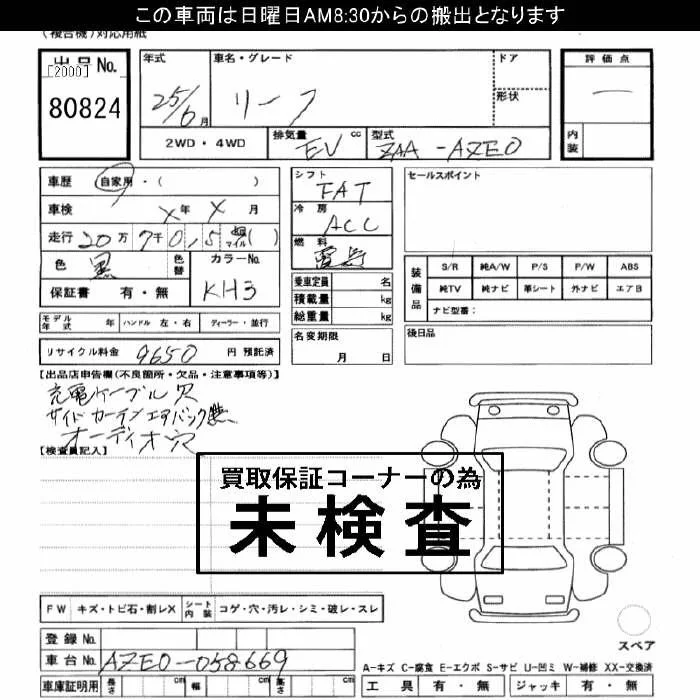 この車両は日曜日AM8:30からの搬出となります
(複合機)対応用紙
出品No.
[2000]
80824
年式 25/6月
車名・グレード リーフ
ドア
形状
評価点
内装
2WD・4WD
排気量 EV cc
型式 ZAA-AZE0
車歴 自家用・( )
車検 X年X月
走行 20万7千0,15 マイル( )
色 黒
色替
カラーNo. KH3
保証書 有・無
シフト FAT
冷房 ACC
燃料
乗車定員 名
積載量 kg
総重量 kg
セールスポイント
装備品
S/R 純A/W P/S P/W ABS
純TV 純ナビ 革シート 外ナビ エアB
ナビ型番:
モデル年式 年 ハンドル 左・右 ディーラー・並行
名変期限 月 日
後日品
リサイクル料金 9650 円 預託済
【出品店申告欄(不良箇所・欠品・注意事項等)】
充電ケーブル欠
サイドカーテンエアバック無
オーディオ穴
【検査員記入】
買取保証コーナーの為
未検査
FW キズ・トビ石・割レX シート内装 コゲ・穴・汚レ・シミ・破レ・スレ
スペア
登録No.
車台No. AZE0-058669
A-キズ C-腐食 E-エクボ S-サビ U-凹ミ W-補修 XX-交換済
車庫証明用 長さ cm 幅 cm 高さ cm
工具 有・無 ジャッキ 有・無